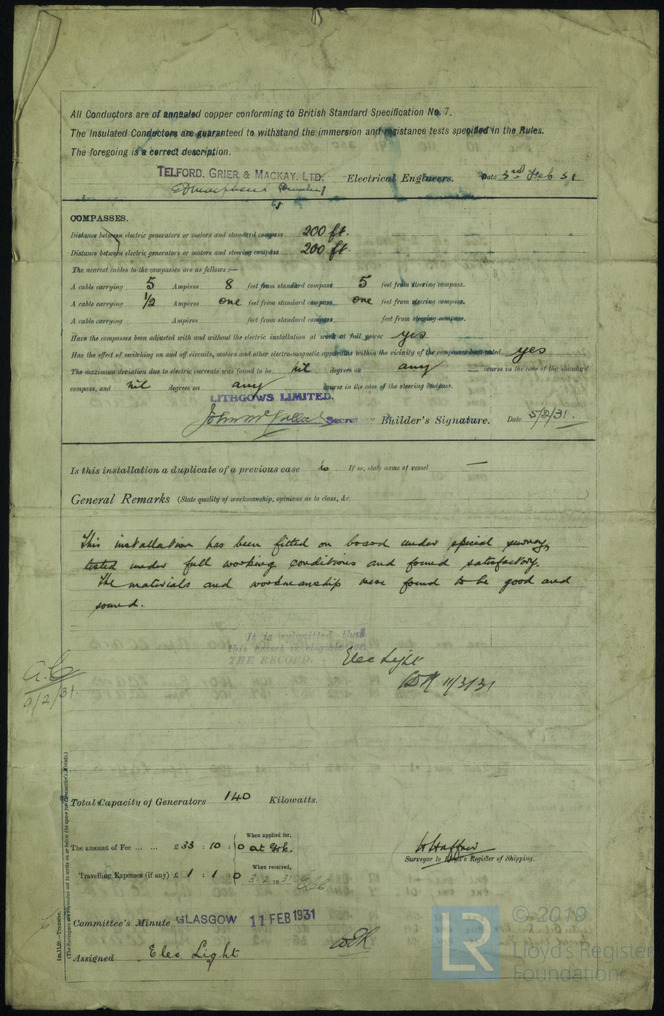 All Conductors are of annealed copper conforming to British Standard Specification No. 7.
The Insulated Conductors are guaranteed to withstand the immersion and resistance tests specified in the Rules.
The foregoing is a correct description.
TELFORD, GRIER & MACKAY, LTD. Electrical Engineers. Date 3rd Feb 31
COMPASSES.
Distance between electric generators or motors and standard compass 200 ft.
Distance between electric generators or motors and steering compass 200 ft
The nearest cables to the compasses are as follows:—
A cable carrying 5 Ampères 8 feet from standard compass 5 feet from steering compass.
A cable carrying 1/2 Ampères one feet from standard compass one feet from steering compass.
A cable carrying Ampères feet from standard compass feet from steering compass.
Have the compasses been adjusted with and without the electric installation at work at full power yes
Has the effect of switching on and off circuits, motors and other electro-magnetic apparatus within the vicinity of the compasses been noted yes
The maximum deviation due to electric currents was found to be nil degrees on any course in the case of the standard
compass, and nil degrees on any course in the case of the steering compass.
LITHGOWS LIMITED.
Builder's Signature. Date 5/2/31.
Is this installation a duplicate of a previous case no If so, state name of vessel —
General Remarks (State quality of workmanship, opinions as to class, &c.
This installation has been fitted on board under special survey,
tested under full working conditions and found satisfactory.
The materials and workmanship were found to be good and
sound.
It is submitted that
this vessel is eligible for
THE RECORD. Elec Light
11/3/31
9/2/31.
Total Capacity of Generators 140 Kilowatts.
When applied for,
The amount of Fee ... ... £ 33 : 10 : 0
When received,
Travelling Expenses (if any) £ 1 : 1 : 0
Surveyor to Lloyd's Register of Shipping.
Committee's Minute GLASGOW 11 FEB 1931
Assigned Elec Light
LR
© 2019
Lloyd's Register
Foundation